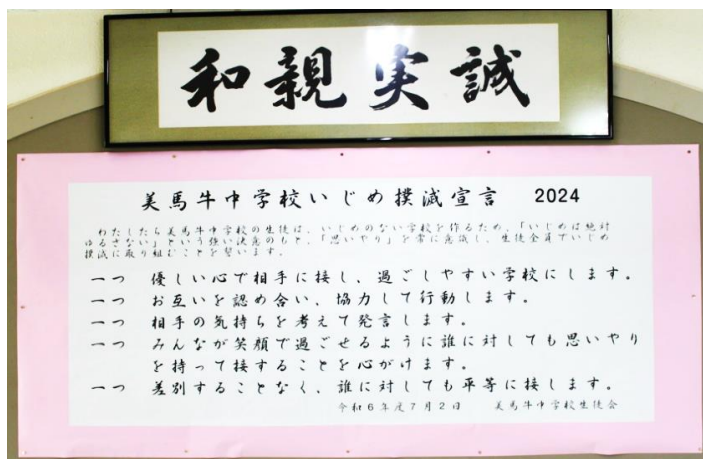 和親実誠
美馬牛中学校いじめ撲滅宣言 2024
わたしたち美馬牛中学校の生徒は、いじめのない学校を作るため、「いじめは絶対
ゆるさない」という強い決意のもと、「思いやり」を常に意識し、生徒全員でいじめ
撲滅に取り組むことを誓います。
一つ 優しい心で相手に接し、過ごしやすい学校にします。
一つ お互いを認め合い、協力して行動します。
一つ 相手の気持ちを考えて発言します。
一つ みんなが笑顔で過ごせるように誰に対しても思いやり
を持って接することを心がけます。
一つ 差別することなく、誰に対しても平等に接します。
令和6年度7月2日 美馬牛中学校生徒会